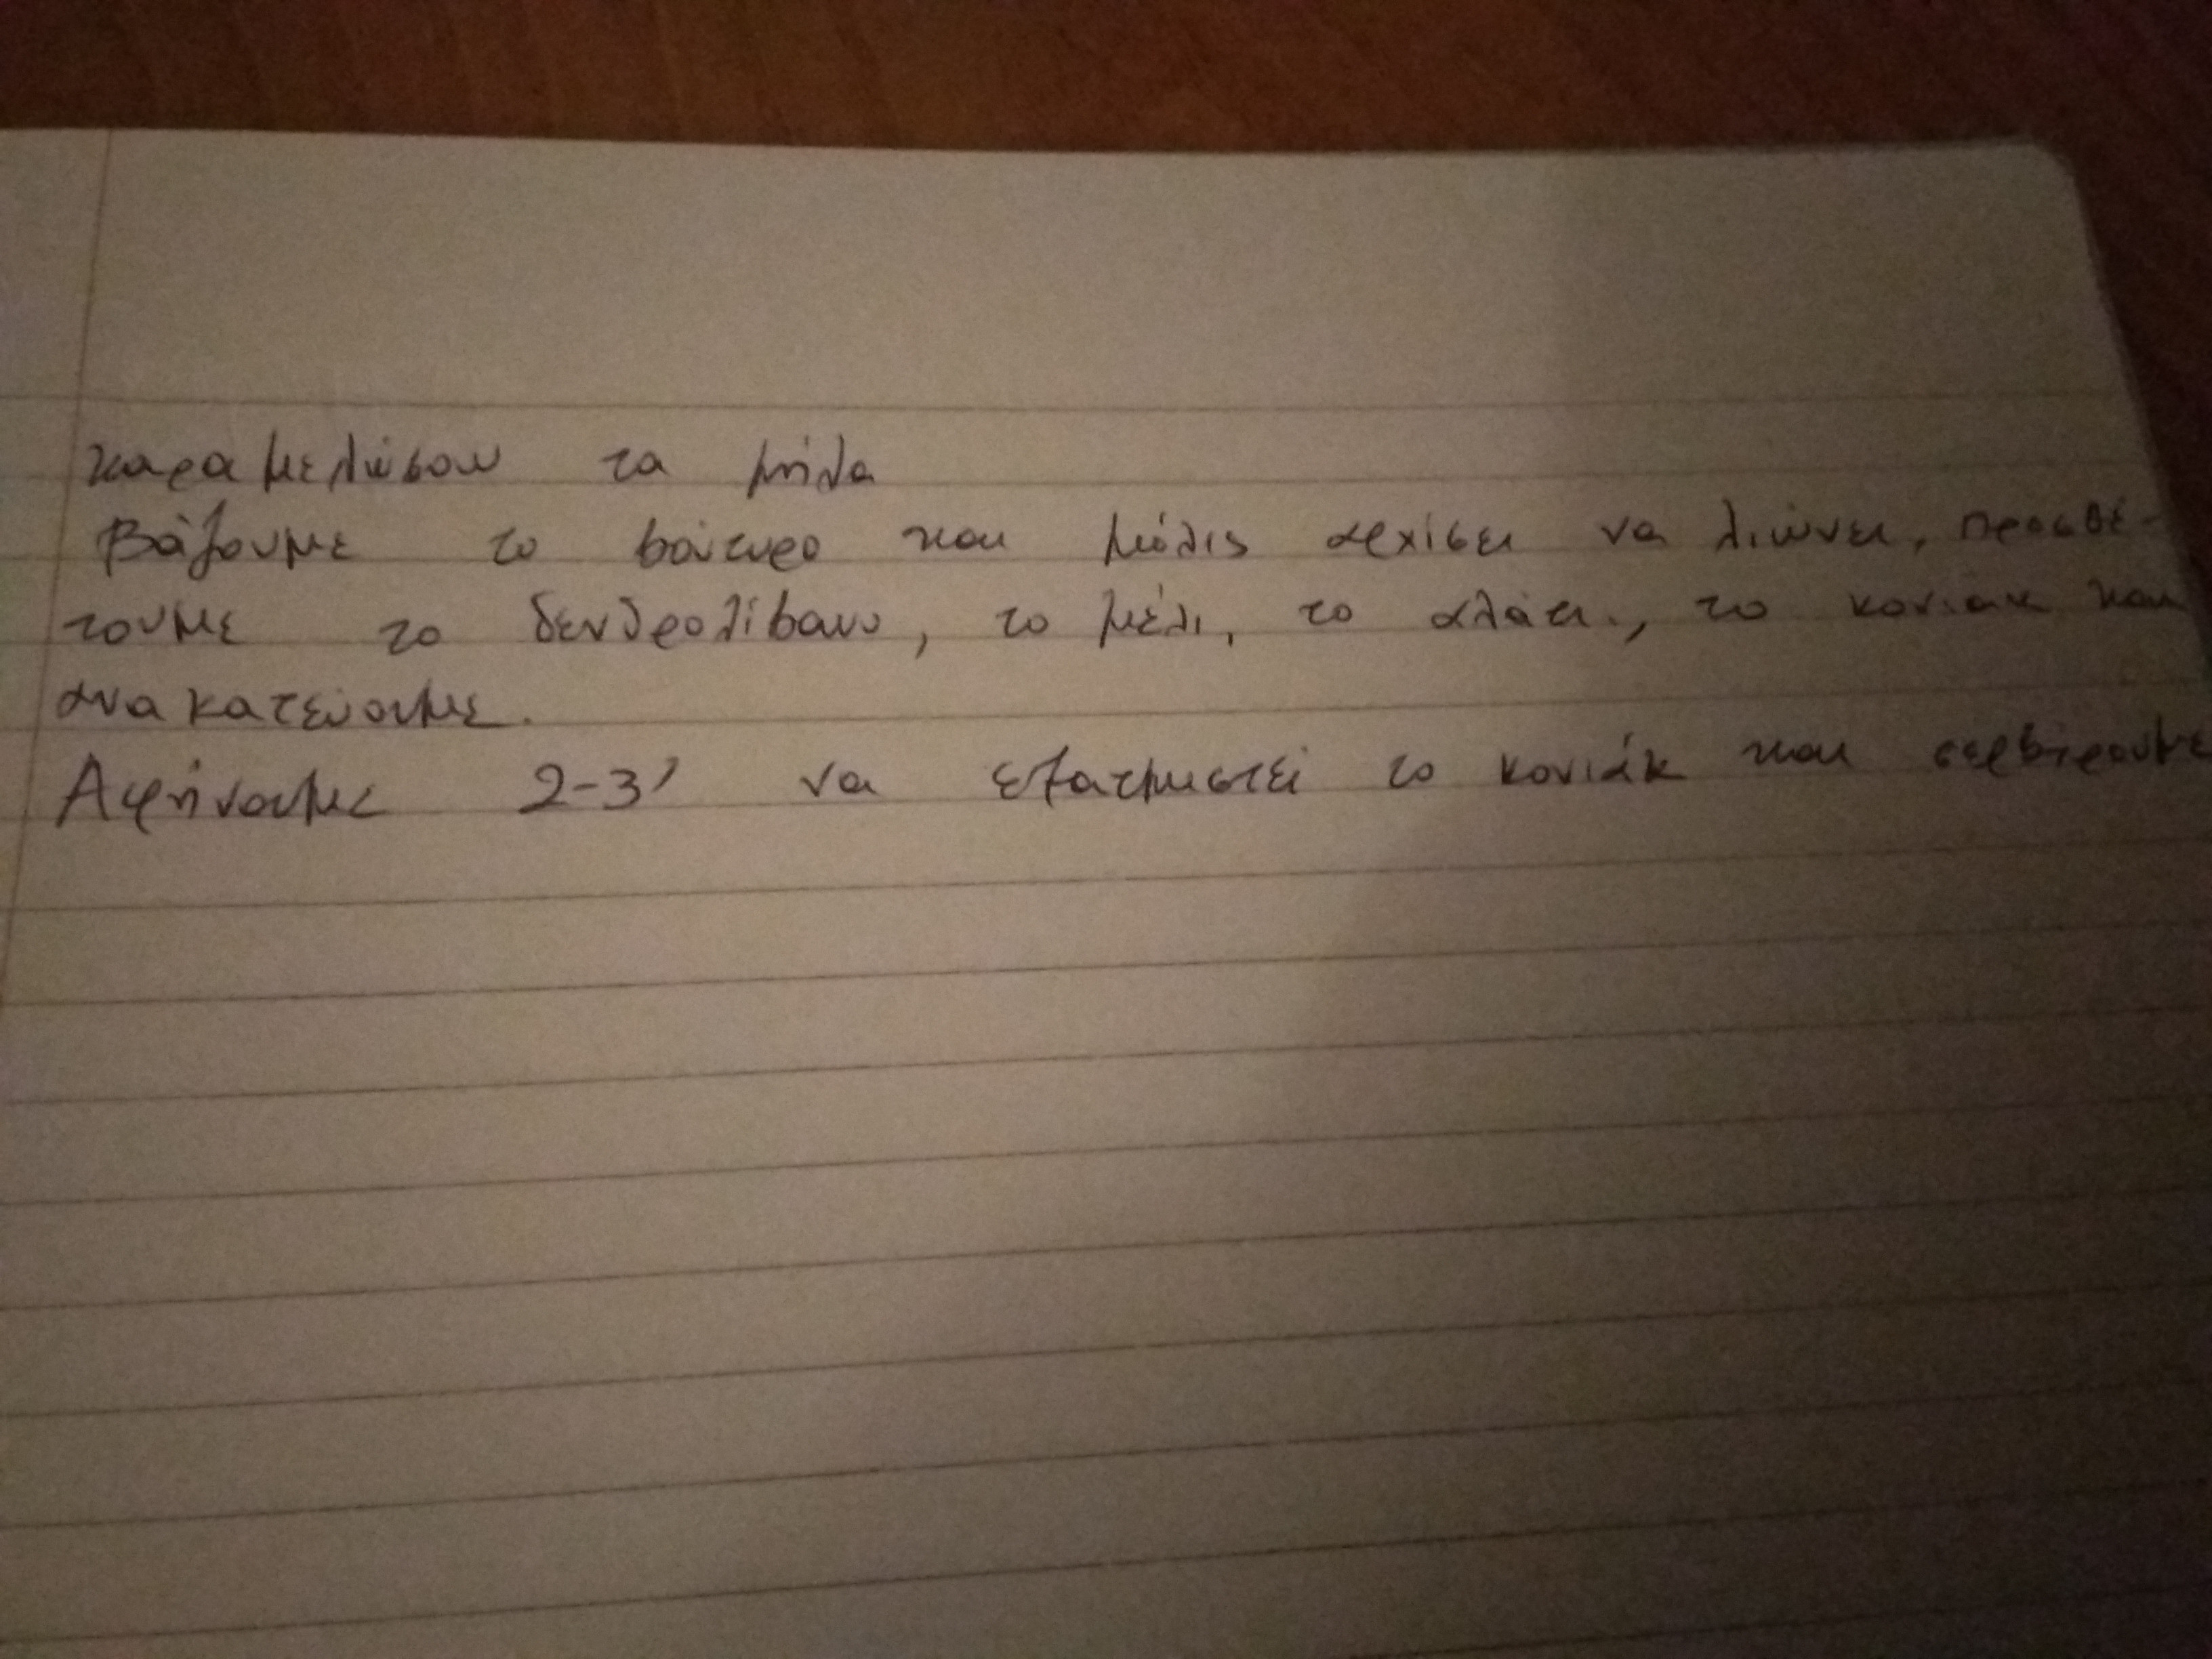 καραμελώσουν τα μήλα
Βάζουμε το βούτυρο και μόλις αρχίσει να λιώνει, προσθέ-
τουμε το δενδρολίβανο, το μέλι, το αλάτι, το κονιάκ και
ανακατεύουμε.
Αφήνουμε 2-3' να εξατμιστεί το κονιάκ και σερβίρουμε